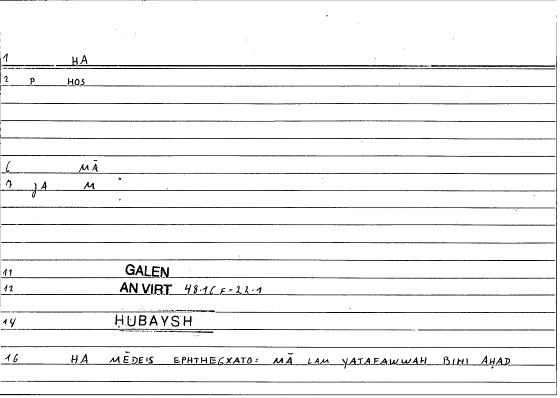 1 HA
2 P HOS
6 MĀ
7 JA M
11 GALEN
12 AN VIRT 48.16 F = 22.1
14 ḤUBAYSH
16 HA MĒDEIS EPHTHEGXATO: MĀ LAM YATAFAWWAH BIHI AḤAD